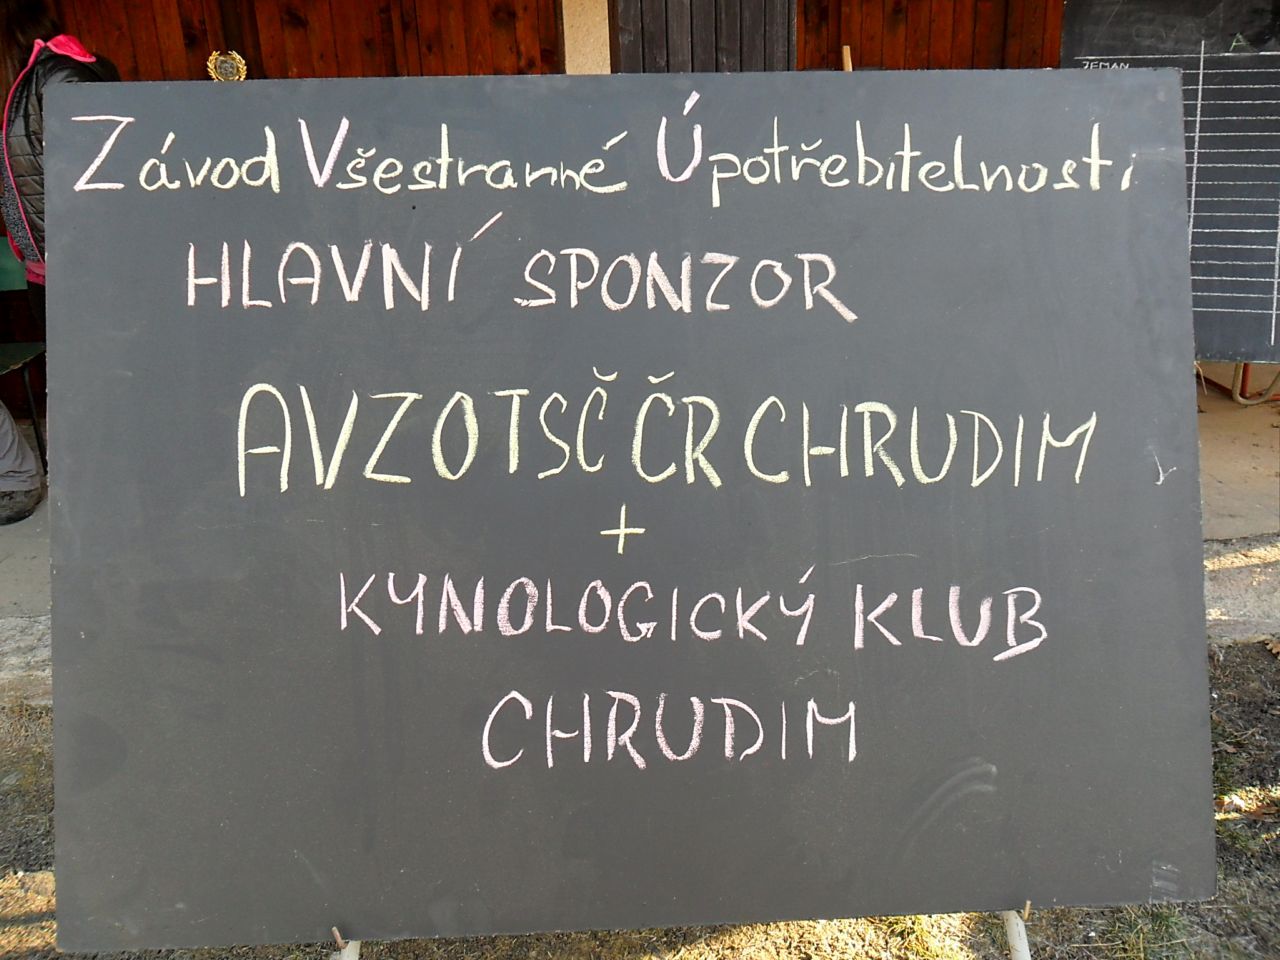 Závod Všestranné Úpotřebitelnosti
HLAVNÍ SPONZOR
AVZOTSČ ČR CHRUDIM
+
KYNOLOGICKÝ KLUB
CHRUDIM
ZEMAN
A